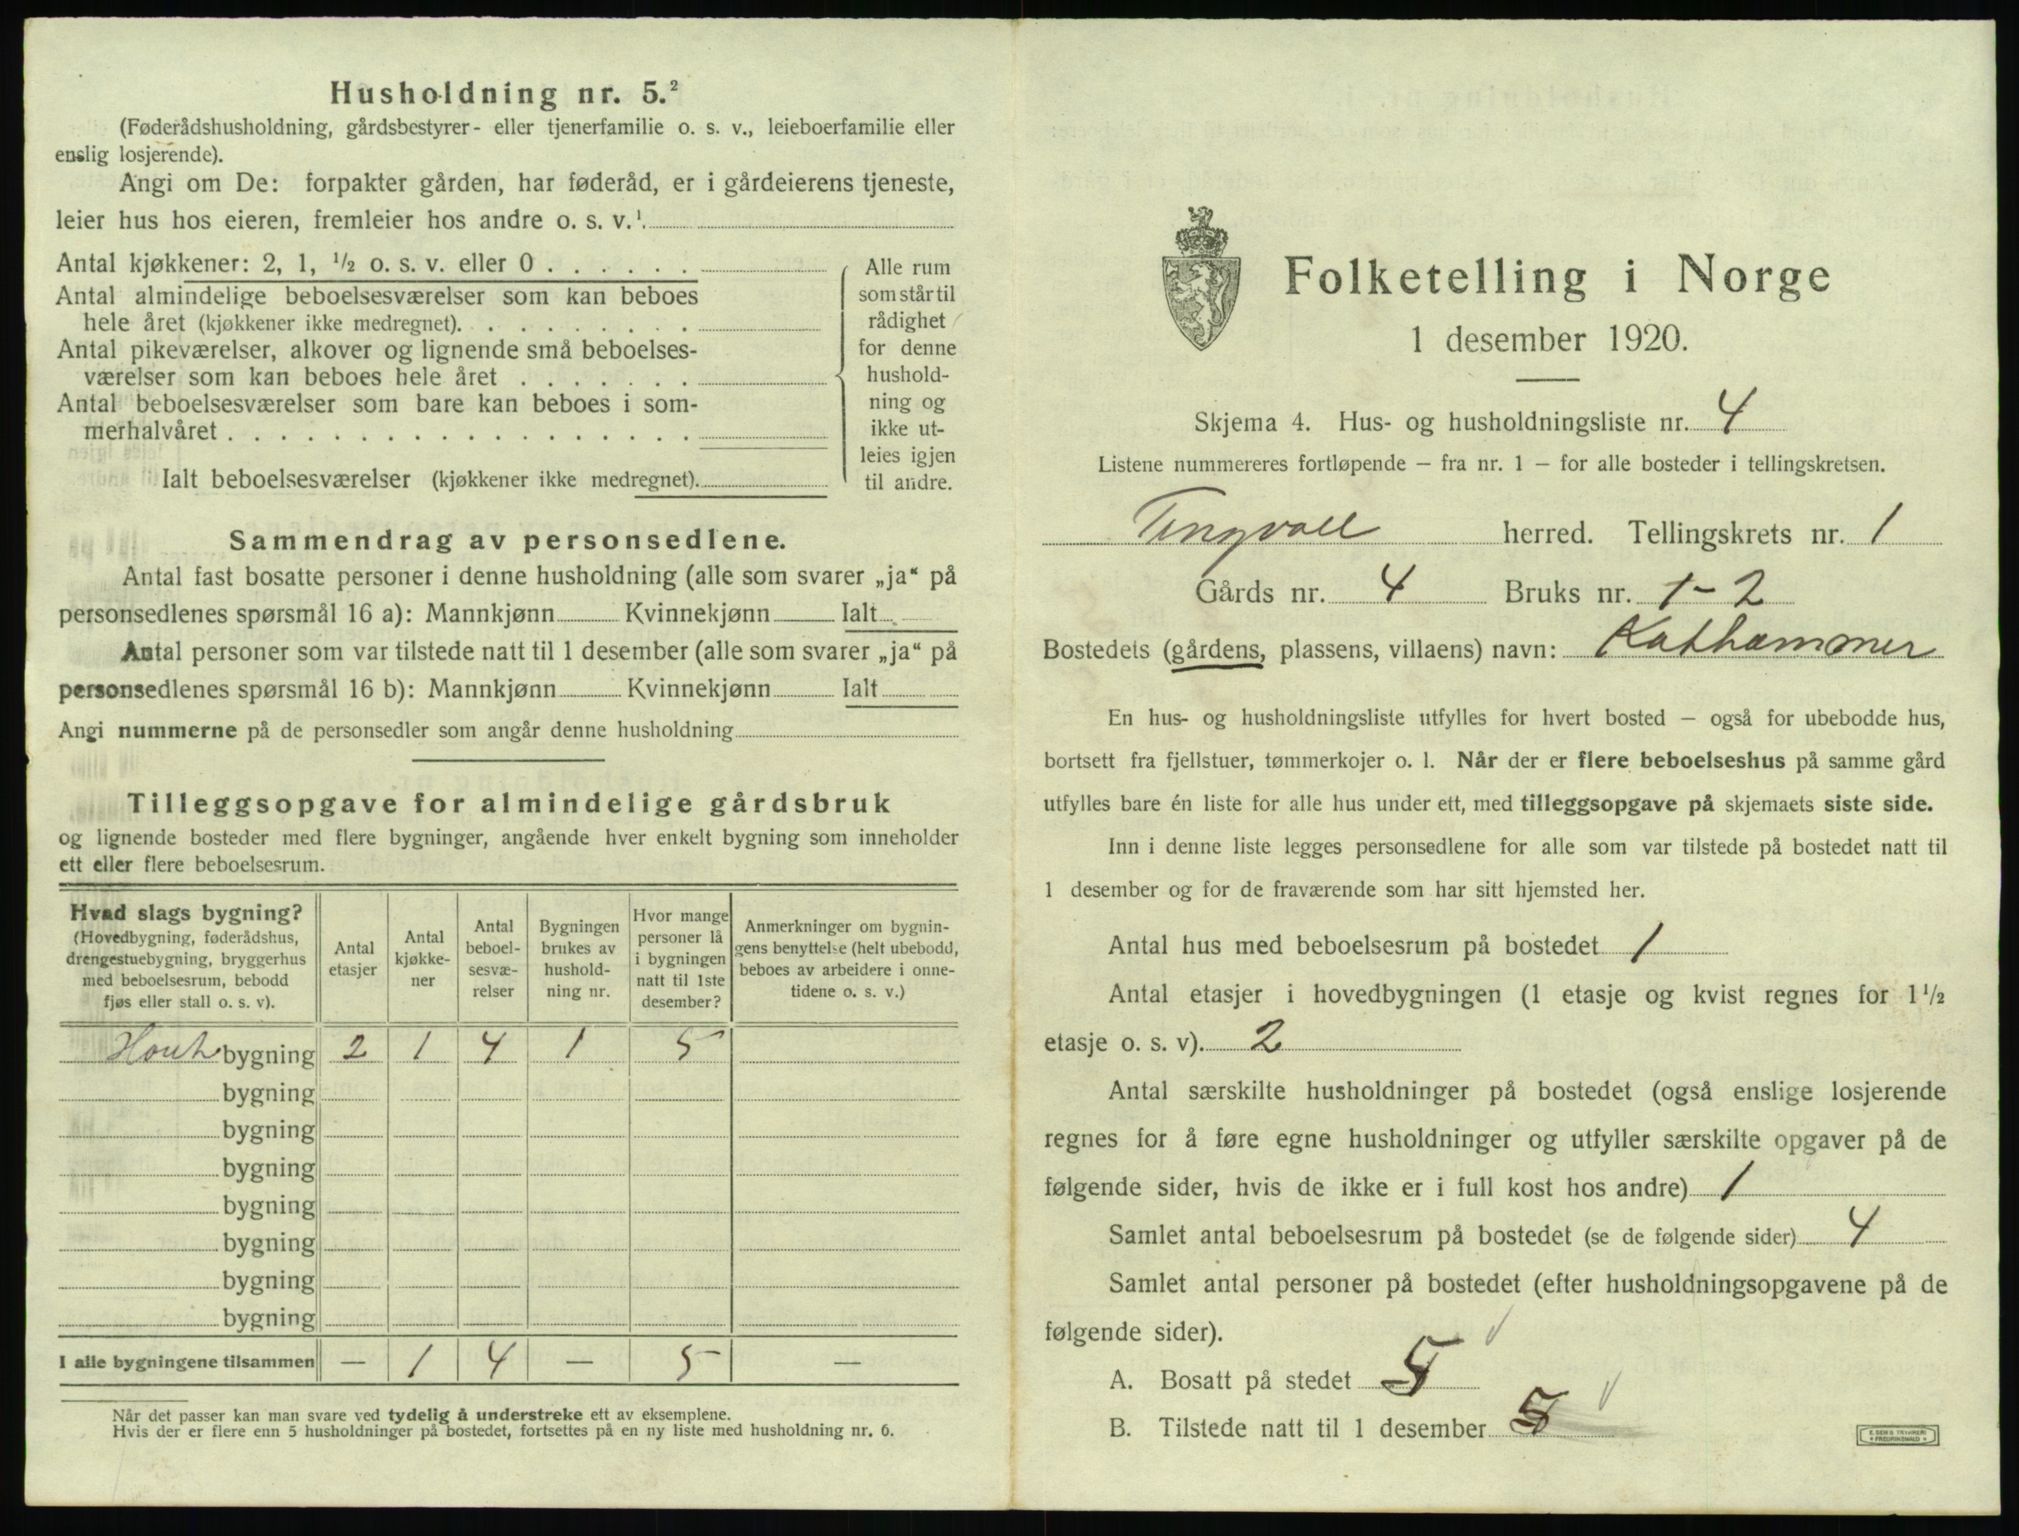 Husholdning nr. 5.²
(Føderådshusholdning, gårdsbestyrer- eller tjenerfamilie o. s. v., leieboerfamilie eller
enslig losjerende).
Angi om De: forpakter gården, har føderåd, er i gårdeierens tjeneste,
leier hus hos eieren, fremleier hos andre o. s. v.¹
Antal kjøkkener: 2, 1, ¹/₂ o. s. v. eller 0 . . . . . .
Antal almindelige beboelsesværelser som kan beboes
hele året (kjøkkener ikke medregnet). . . . . . . . .
Antal pikeværelser, alkover og lignende små beboelses-
værelser som kan beboes hele året . . . . . . .
Antal beboelsesværelser som bare kan beboes i som-
merhalvåret . . . . . . . . . . . . . . . . . .
Ialt beboelsesværelser (kjøkkener ikke medregnet).
Alle rum
som står til
rådighet
for denne
hushold-
ning og
ikke ut-
leies igjen
til andre.
Sammendrag av personsedlene.
Antal fast bosatte personer i denne husholdning (alle som svarer „ja“ på
personsedlenes spørsmål 16 a): Mannkjønn Kvinnekjønn Ialt
Antal personer som var tilstede natt til 1 desember (alle som svarer „ja“ på
personsedlenes spørsmål 16 b): Mannkjønn Kvinnekjønn Ialt
Angi nummerne på de personsedler som angår denne husholdning
Tilleggsopgave for almindelige gårdsbruk
og lignende bosteder med flere bygninger, angående hver enkelt bygning som inneholder
ett eller flere beboelsesrum.
Hvad slags bygning?
(Hovedbygning, føderådshus,
drengestuebygning, bryggerhus
med beboelsesrum, bebodd
fjøs eller stall o. s. v).
Antal
etasjer
Antal
kjøkke-
ner
Antal
beboel-
sesvæ-
relser
Bygningen
brukes av
hushold-
ning nr.
Hvor mange
personer lå
i bygningen
natt til 1ste
desember?
Anmerkninger om bygnin-
gens benyttelse (helt ubebodd,
beboes av arbeidere i onne-
tidene o. s. v.)
bygning 2 1 4 1 5
bygning
bygning
bygning
bygning
bygning
bygning
bygning
I alle bygningene tilsammen — 1 4 — 5 —
Når det passer kan man svare ved tydelig å understreke ett av eksemplene.
Hvis der er flere enn 5 husholdninger på bostedet, fortsettes på en ny liste med husholdning nr. 6.
Folketelling i Norge
1 desember 1920.
Skjema 4. Hus- og husholdningsliste nr. 4
Listene nummereres fortløpende – fra nr. 1 – for alle bosteder i tellingskretsen.
Tingvoll herred. Tellingskrets nr. 1
Gårds nr. 4 Bruks nr. 1-2
Bostedets (gårdens, plassens, villaens) navn: Kathammer
En hus- og husholdningsliste utfylles for hvert bosted – også for ubebodde hus,
bortsett fra fjellstuer, tømmerkojer o. l. Når der er flere beboelseshus på samme gård
utfylles bare én liste for alle hus under ett, med tilleggsopgave på skjemaets siste side.
Inn i denne liste legges personsedlene for alle som var tilstede på bostedet natt til
1 desember og for de fraværende som har sitt hjemsted her.
Antal hus med beboelsesrum på bostedet 1
Antal etasjer i hovedbygningen (1 etasje og kvist regnes for 1¹/₂
etasje o. s. v). 2
Antal særskilte husholdninger på bostedet (også enslige losjerende
regnes for å føre egne husholdninger og utfyller særskilte opgaver på de
følgende sider, hvis de ikke er i full kost hos andre) 1
Samlet antal beboelsesrum på bostedet (se de følgende sider) 4
Samlet antal personer på bostedet (efter husholdningsopgavene på de
følgende sider).
A. Bosatt på stedet 5
B. Tilstede natt til 1 desember 5